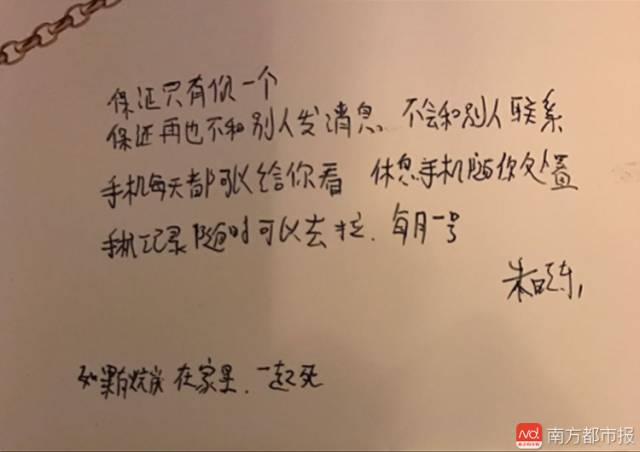 保证只有你一个
保证再也不和别人发消息 不会和别人联系
手机每天都可以给你看 休息手机随你处置
手机记录随时可以去拉.每月一号
朱晓东
如果有 在家里.一起死
南方都市报